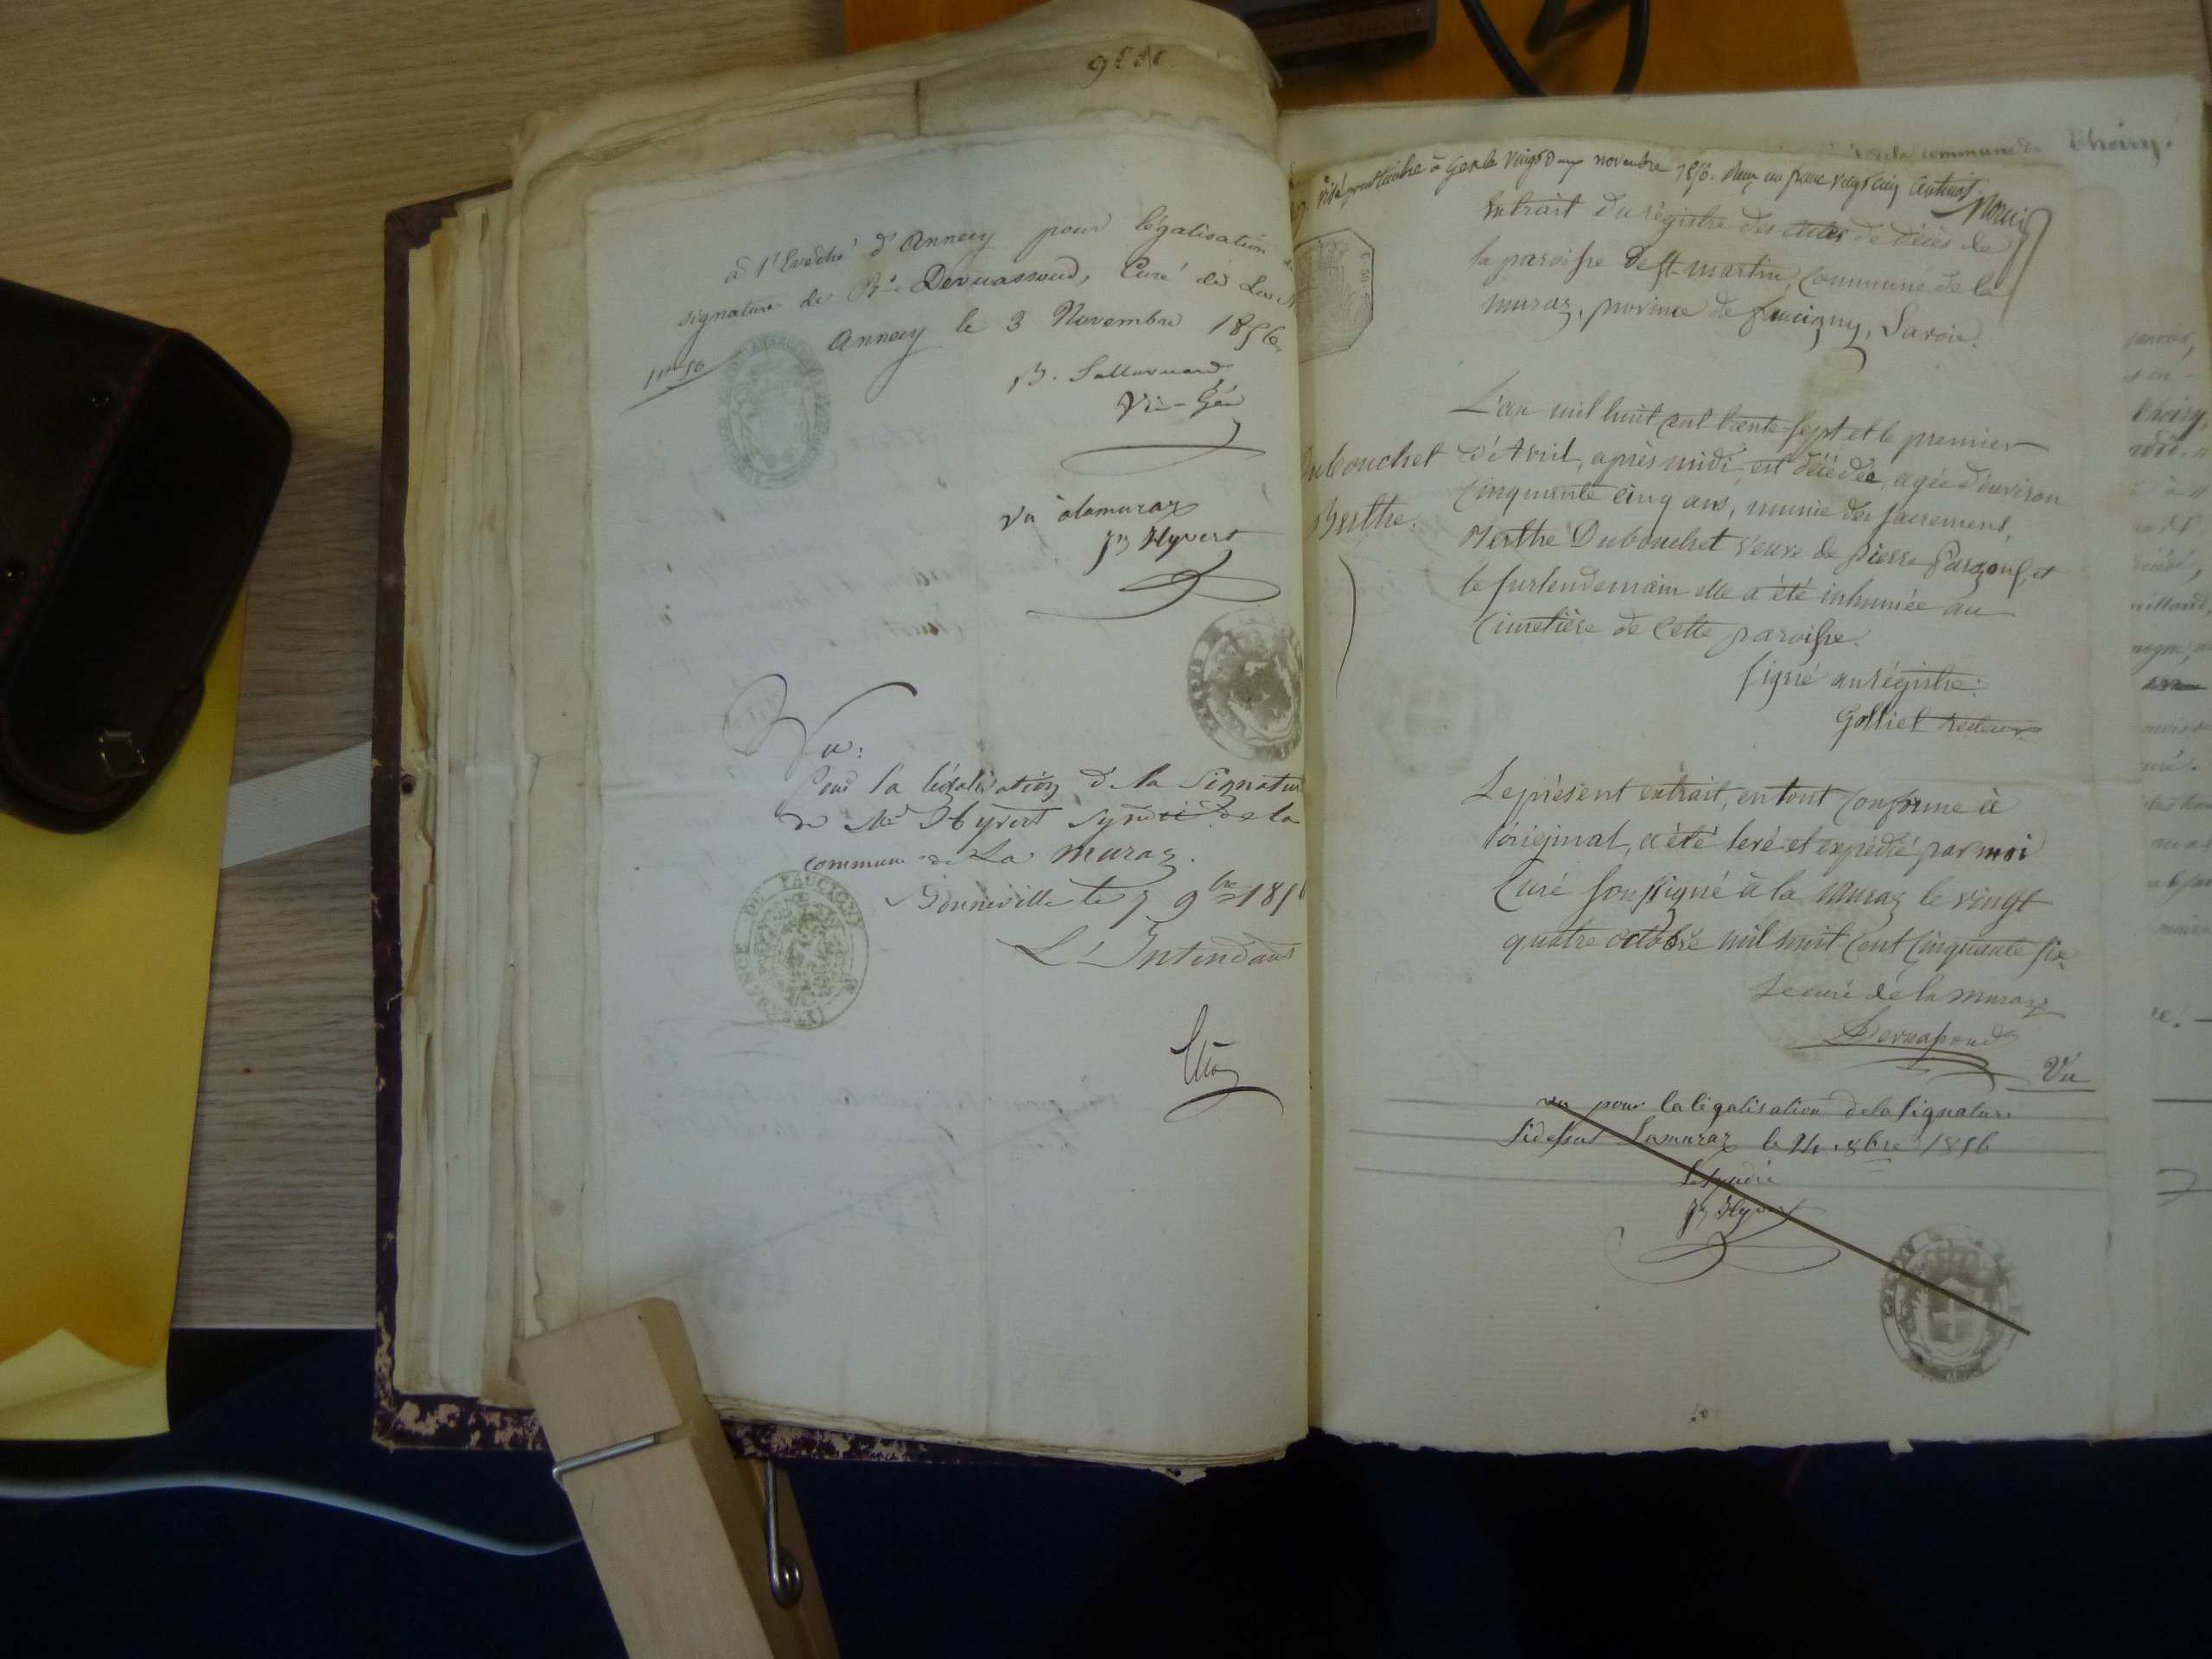 à l'Evêché d'Annecy pour légalisation de
signature de Rd Dervassoud, Curé de La M
Annecy le 3 Novembre 1856
B. Sallavuard
Vre-Gén
Vu à lamuraz
Hyvert
Vu:
Pour la légalisation de la Signature
de Mr Hyvert Syndic de la
commune de La Muraz.
Bonneville le 7 9bre 185
L'Intendant
DE FAUCIGNY
visé pour timbre à Gex le Vingt Deux novembre 1856. Reçu un franc vingt cinq centimes
Extrait du régistre des actes de décès de
la paroisse de St. martin, commune de la
muraz, province de faucigny, Savoie.
Dubouchet
Berthe.
L'an mil huit cent trente-sept et le premier
d'Avril, après midi, est décédée, agée d'environ
cinquante cinq ans, munie des sacremens,
Berthe Dubouchet veuve de pierre et
le surlendemain elle a été inhumée au
cimetière de cette paroisse.
signé au régistre:
Golliet recteur
Le présent extrait, en tout conforme à
l'original, a été levé et expédié par moi
Curé soussigné à la Muraz le vingt
quatre octobre mil huit cent cinquante six.
Le curé de la muraz
Dervassoud
Vu
vu pour la légalisation de la signature
Lamuraz le 24 8bre 1856
Le syndic
Hyvert
Choisy